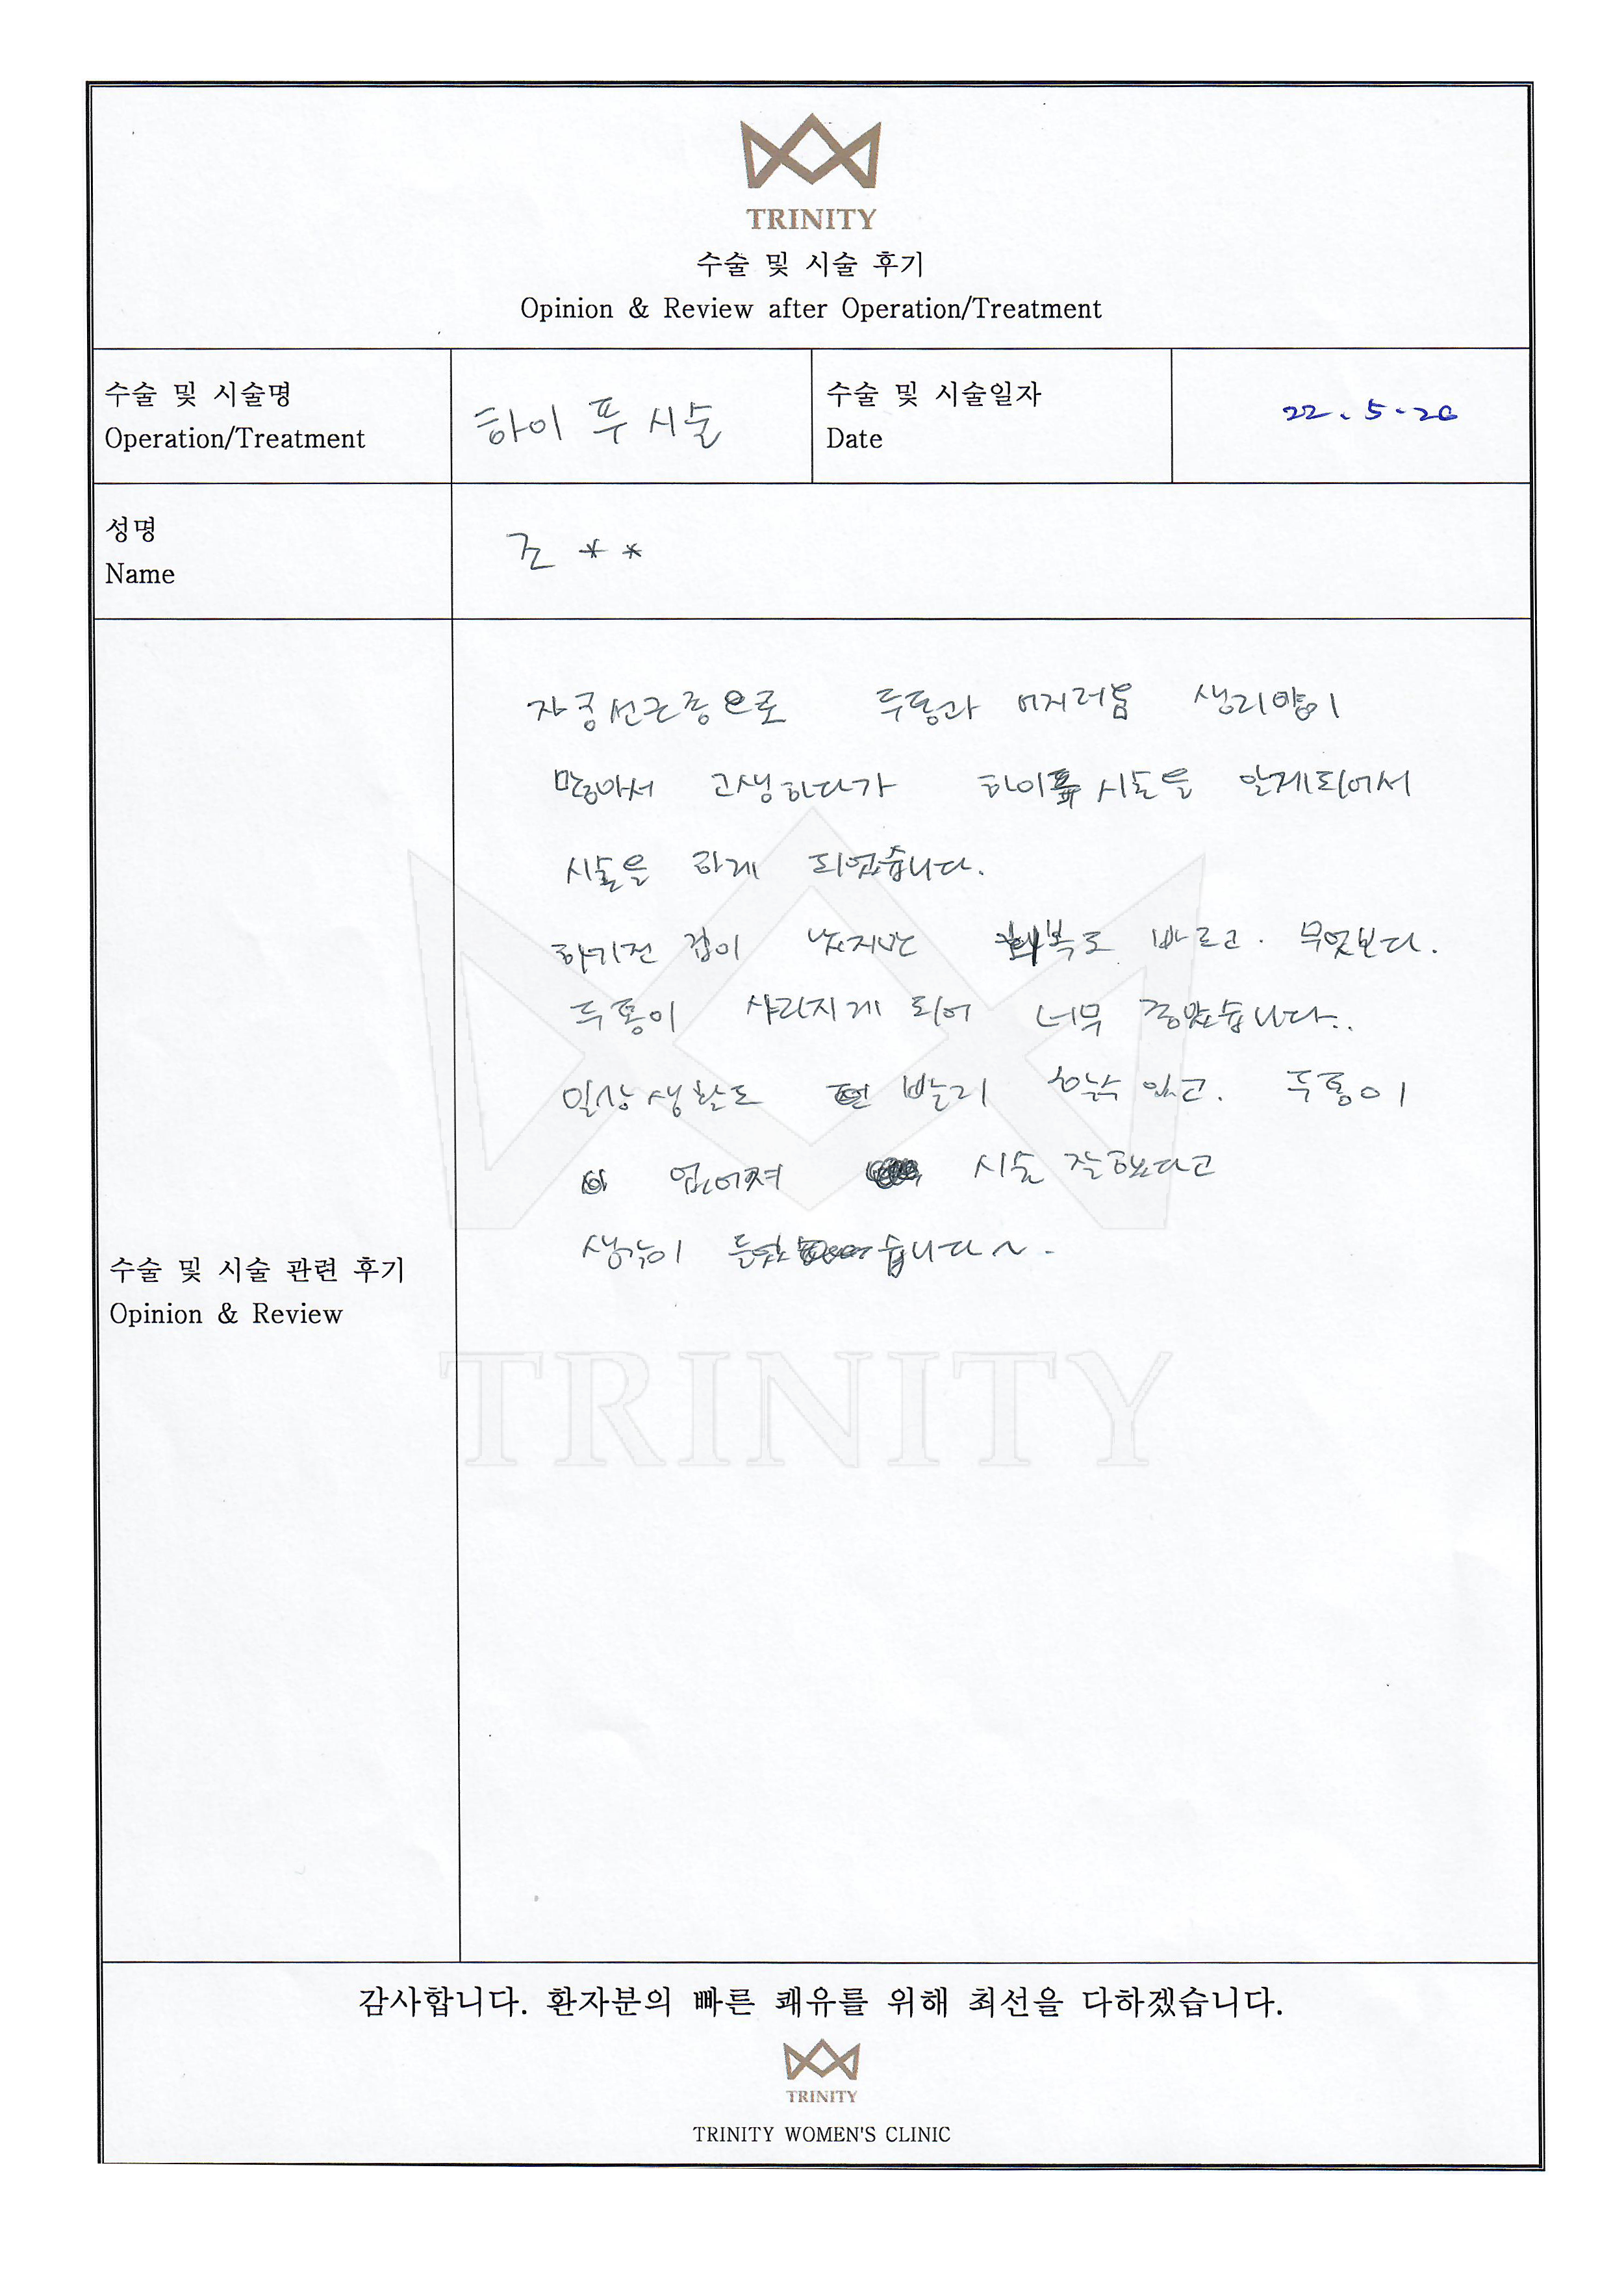 TRINITY
수술 및 시술 후기
Opinion & Review after Operation/Treatment
수술 및 시술명
Operation/Treatment
하이푸시술
수술 및 시술일자
Date
22.5.26
성명
Name
조 * *
자궁선근증으로 두통과 어지러움 생리양이
많아서 고생하다가 하이푸 시술을 알게되어서
시술을 하게 되었습니다.
하기전 겁이 났지만 회복도 빠르고. 무엇보다.
두통이 사라지게 되어 너무 좋았습니다..
일상생활도 빨리 할수 있고. 두통이
없어져 시술 잘했다고
생각이 들었습니다~.
수술 및 시술 관련 후기
Opinion & Review
TRINITY
감사합니다. 환자분의 빠른 쾌유를 위해 최선을 다하겠습니다.
TRINITY
TRINITY WOMEN'S CLINIC